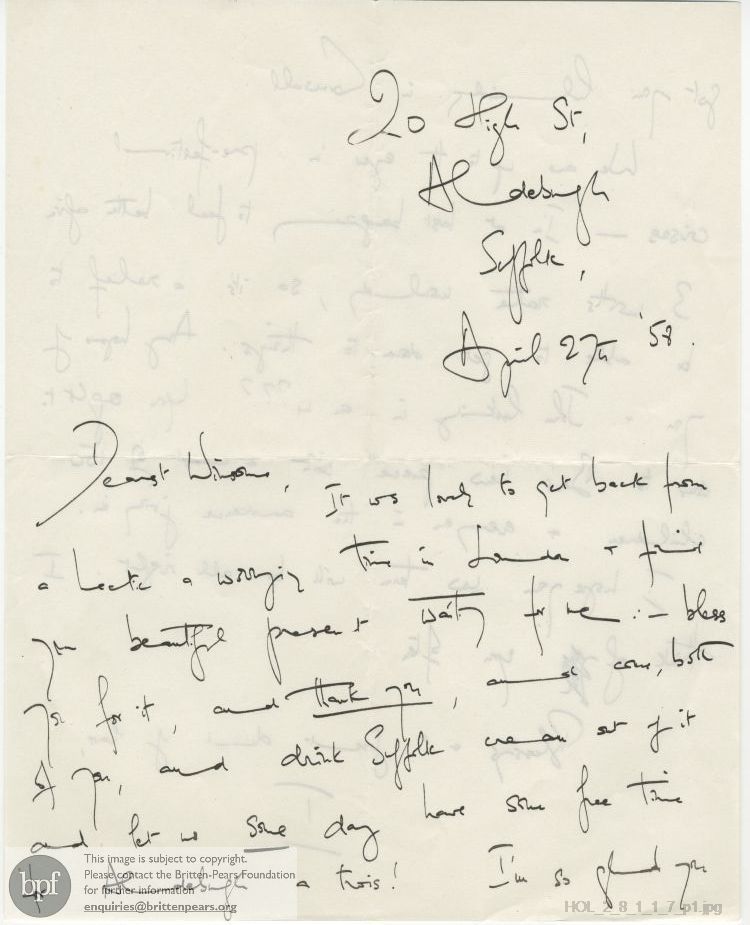 20 High St,
Aldeburgh
Suffolk,
April 27th '58.
Dearest Winsome, It was lovely to get back from
a hectic & worrying time in London & find
your beautiful present waiting for me :- bless
you for it, and thank you, and come, both
of you, and drink Suffolk cream out of it
and let us some day have some free time
in Aldeburgh a trois! I'm so glad you
bpf
This image is subject to copyright.
Please contact the Britten-Pears Foundation
for further information
enquiries@brittenpears.org
HOL_2_8_1_1_7_p1.jpg